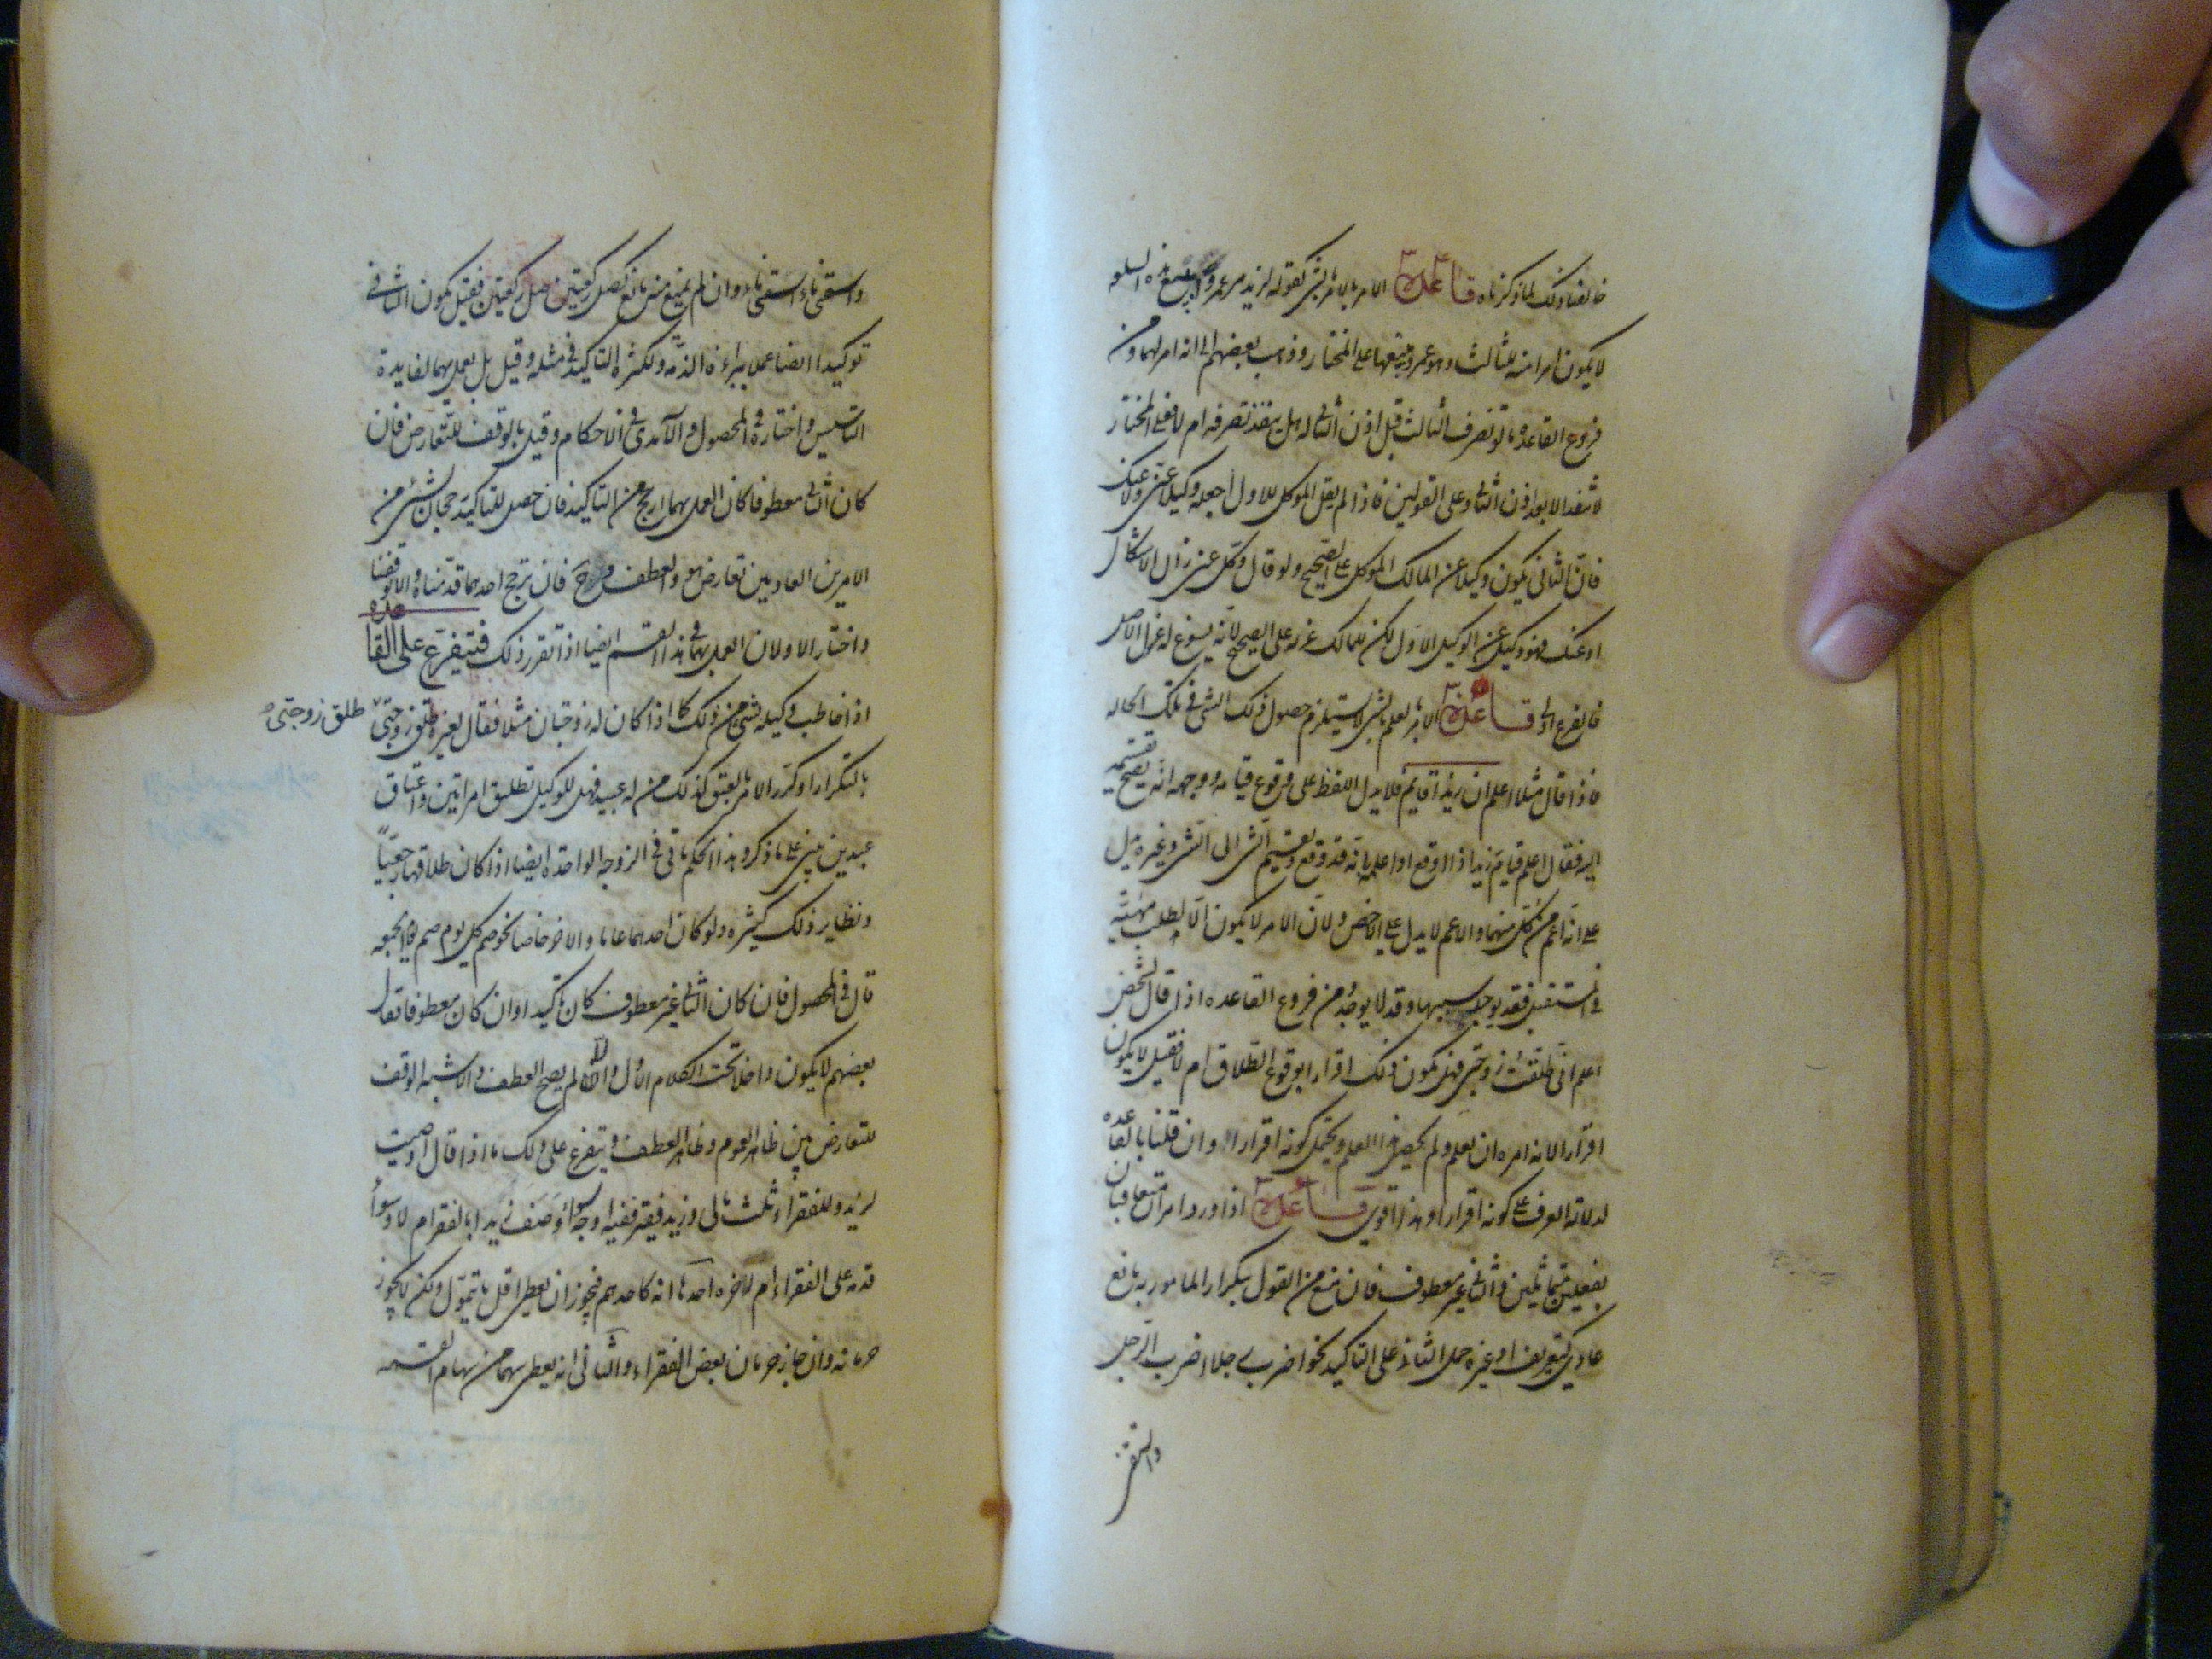 خالفنا ذلك لما ذكرناه قاعدة الامر بالامر بالشئ كقوله لزيد مر عمروا ببيع هذه السلعه
لا يكون امرا منه للثالث وهو عمرو ببيعها على المختار وذهب بعضهم الى انه امر لهما ومن
فروع القاعده ما لو تصرف الثالث قبل اذن الثانى له هل ينفذ تصرفه ام لا فعلى المختار
لا ينفذ الا بعد اذن الثانى وعلى القولين فاذا لم يقل الموكل للاول اجعله وكيلا عنى ولا عنك
فان الثانى يكون وكيلا عن المالك الموكل على الصحيح ولو قال وكل عنى زال الاشكال
او عنك فهو وكيل عن الوكيل الاول لكن للمالك عزله على الصحيح لانه يسوغ له عزل الاصل
فالفرع اولى قاعدة الامر بالعلم بالشئ لا يستلزم حصول ذلك الشئ فى تلك الحاله
فاذا قال مثلا اعلم ان زيدا قايم فلا يدل اللفظ على وقوع قيامه ووجهه انه يصح تقسيمه
اليه فقال اعلم قيام زيد اذا وقع او اعلم بانه قد وقع وتقسيم الشئ الى الشئ وغيره دليل
على انه اعم من كل منهما والاعم لا يدل على الاخص ولان الامر لا يكون الا لطلب مهيته
فى المستقبل فقد يوجد سببها وقد لا يوجد ومن فروع القاعده اذا قال لشخص
اعلم انى طلقت زوجتى فهل يكون ذلك اقرارا بوقوع الطلاق ام لا فقيل لا يكون
اقرارا لانه امره ان يعلم ولم يحصل هذا العلم ويحتمل كونه اقرارا وان قلنا بالقاعده
لدلالة العرف على كونه اقرارا وهذا اقوى قاعدة اذا ورد امران متعاقبان
بفعلين متماثلين والثانى غير معطوف فان منع من القول بتكرار المامور به مانع
عادى كتعريف او غيره حمل الثانى على التاكيد نحو اضرب رجلا اضرب الرجل
واسقنى
واسقنى ماء اسقنى ماء وان لم يمنع منه مانع كصل ركعتين صل ركعتين فقيل يكون الثانى
توكيدا ايضا عملا ببراءة الذمه ولكثرة التاكيد فى مثله وقيل بل يعمل بهما لفايدة
التاسيس واختاره فى المحصول والآمدى فى الاحكام وقيل بالوقف للتعارض فان
كان الثانى معطوفا كان العمل بهما ارجح من التاكيد فان حصل للتاكيد رجحان بشئ من
الامرين العاديين تعارض هو والعطف وح فان ترجح احدهما قدمناه والا توقفنا
واختار الاولان العمل بهما فى هذا القسم ايضا اذا تقرر ذلك فيتفرع على القاعده
اذا خاطب وكيله بشئ من ذلك كما اذا كان له زوجتان مثلا فقال لغيره طلق زوجتى طلق زوجتى
بالتكرار او كرر الامر بالعتق كذلك من له عبيد فهل للوكيل تطليق امراتين واعتاق
عبدين يبنى على ما ذكر وهذا الحكم ياتى فى الزوجه الواحده ايضا اذا كان طلاقها رجعيا
ونظاير ذلك كثيره ولو كان احدهما عاما والاخر خاصا نحو صم كل يوم صم يوم الجمعه
قال فى المحصول فان كان الثانى غير معطوف كان تاكيدا وان كان معطوفا فقال
بعضهم لا يكون داخلا تحت الكلام الاول والا لم يصح العطف والاشبه الوقف
للتعارض بين ظاهر العموم وظاهر العطف ويتفرع على ذلك ما اذا قال اوصيت
لزيد وللفقراء بثلث مالى وزيد فقير ففيه اوجه سواء وصف زيدا بالفقر ام لا وسواء
قدمه على الفقراء ام لاخره احدها انه كاحدهم فيجوز ان يعطى اقل ما يتمول ولكن لا يجوز
حرمانه وان جاز حرمان بعض الفقراء والثانى انه يعطى سهما من سهام القسمه